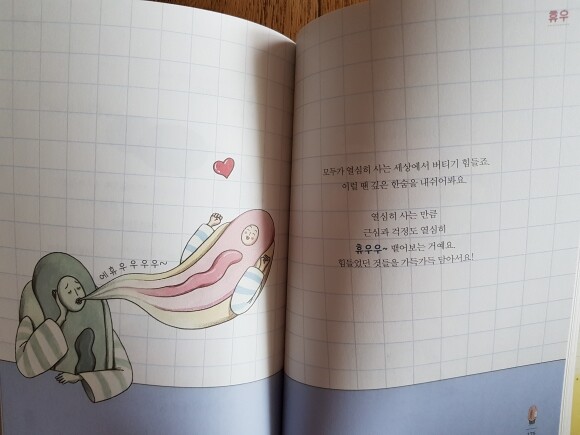 휴우
에휴우우우우~
모두가 열심히 사는 세상에서 버티기 힘들죠.
이럴 땐 깊은 한숨을 내쉬어봐요.
열심히 사는 만큼
근심과 걱정도 열심히
휴우우~ 뱉어보는 거예요.
힘들었던 것들을 가득가득 담아서요!